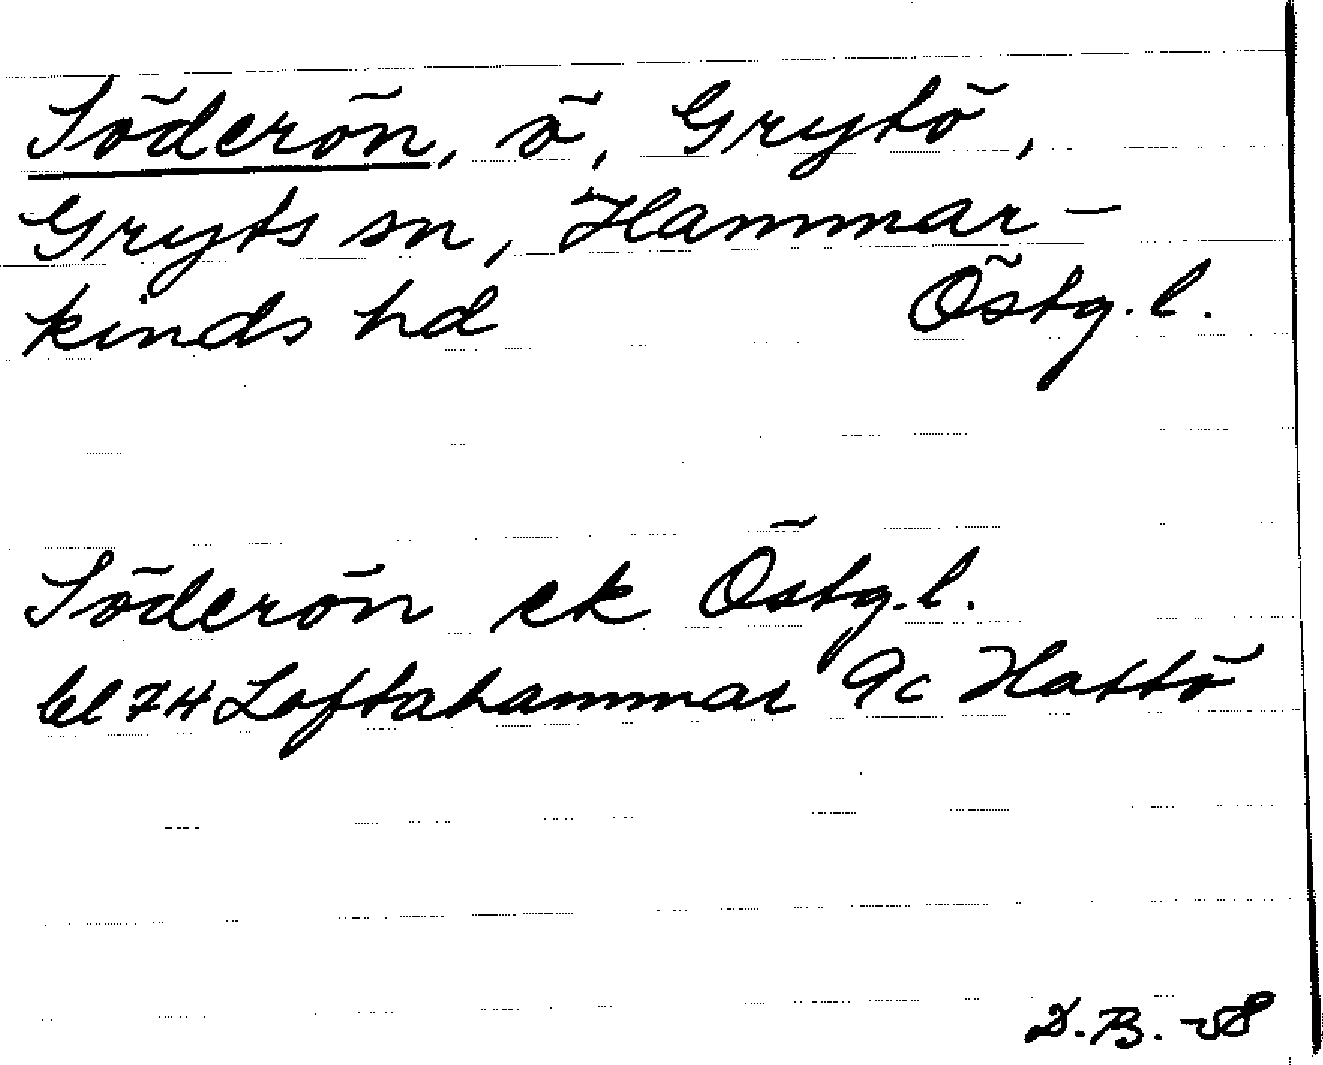 Söderön, ö, Grytö,
Gryts sn, Hammar-
kinds hd Östg. l.
Söderön ek Östg. l.
bl 7H Loftahammar 9c Hattö
D.B. -58